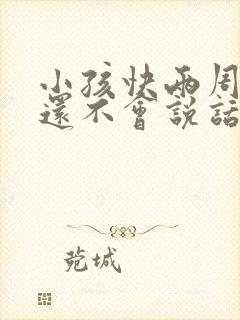 小孩快兩周
還不會説話
菀城